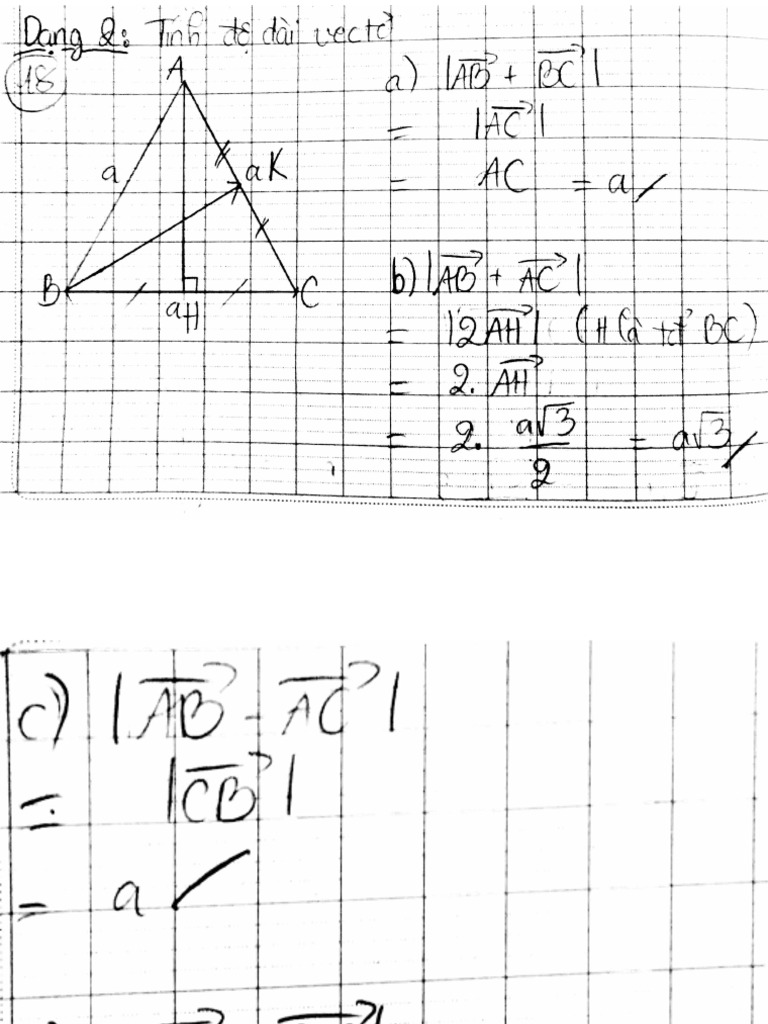 Dạng 2: Tính độ dài vectơ
18
A
a
a K
B
C
a H
a) |\overrightarrow{AB} + \overrightarrow{BC}|
= |\overrightarrow{AC}|
= AC = a
b) |\overrightarrow{AB} + \overrightarrow{AC}|
= |2\overrightarrow{AH}| (H là tđ BC)
= 2. \overrightarrow{AH}
= 2. \frac{a\sqrt{3}}{2} = a\sqrt{3}
c) |\overrightarrow{AB} - \overrightarrow{AC}|
= |\overrightarrow{CB}|
= a